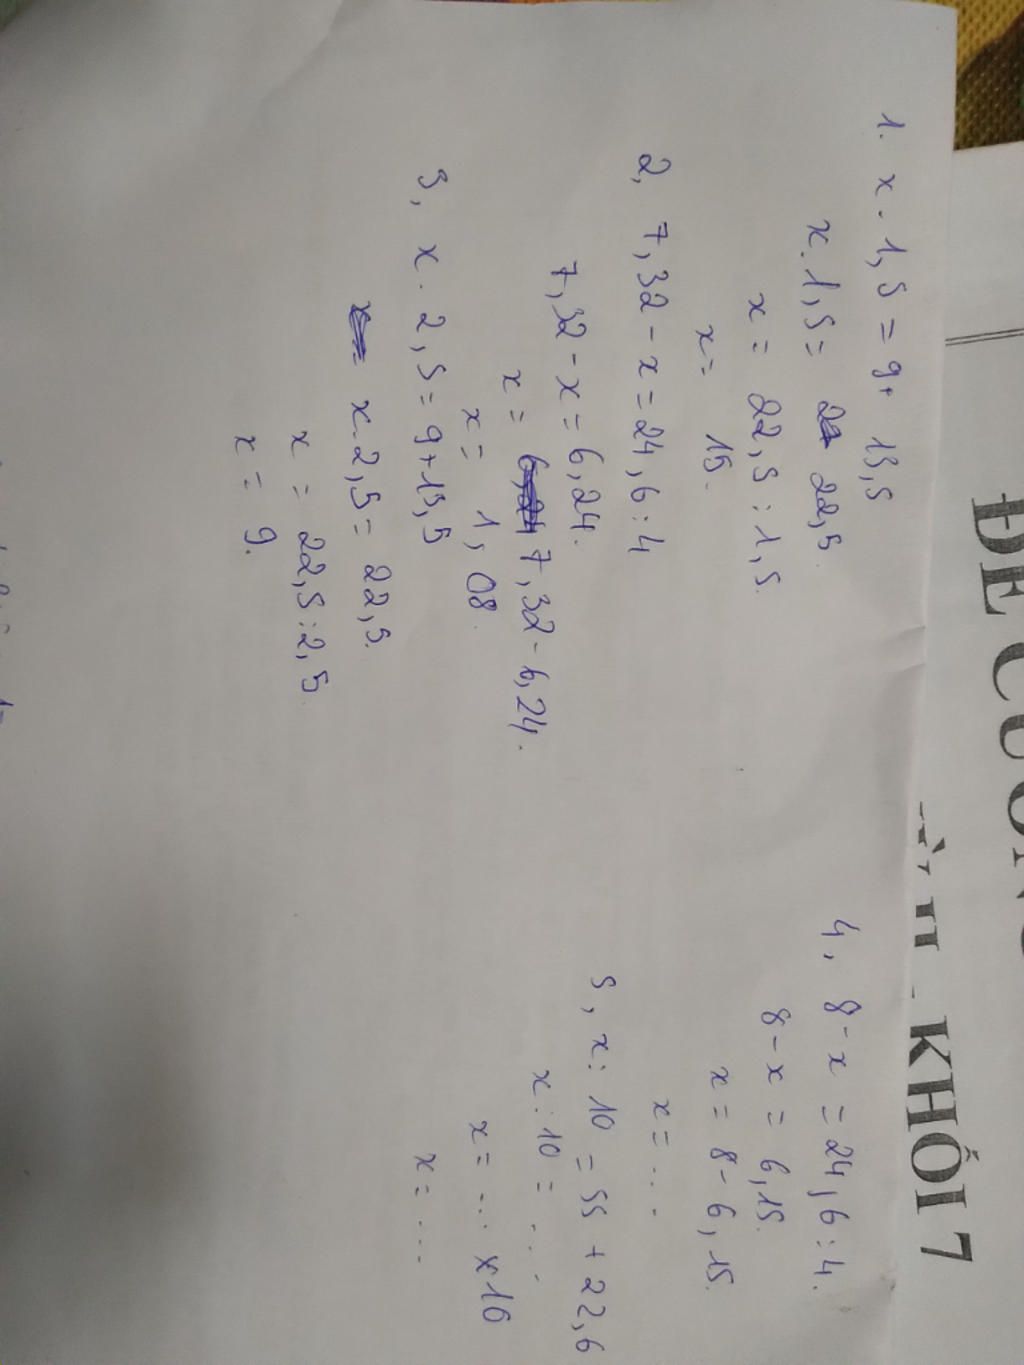 1. x . 1,5 = 9 + 13,5
x . 1,5 = 22,5
x = 22,5 : 1,5.
x = 15.
2, 7,32 - x = 24,6 : 4
7,32 - x = 6,24.
x = 7,32 - 6,24.
x = 1,08.
3, x . 2,5 = 9 + 13,5
x . 2,5 = 22,5.
x = 22,5 : 2,5
x = 9.
4, 8 - x = 24,6 : 4.
8 - x = 6,15.
x = 8 - 6,15.
x = ...
5, x : 10 = 55 + 22,6
x : 10 = ...
x = ... x 10
x = ...
ĐỀ CƯƠN
KHỐI 7